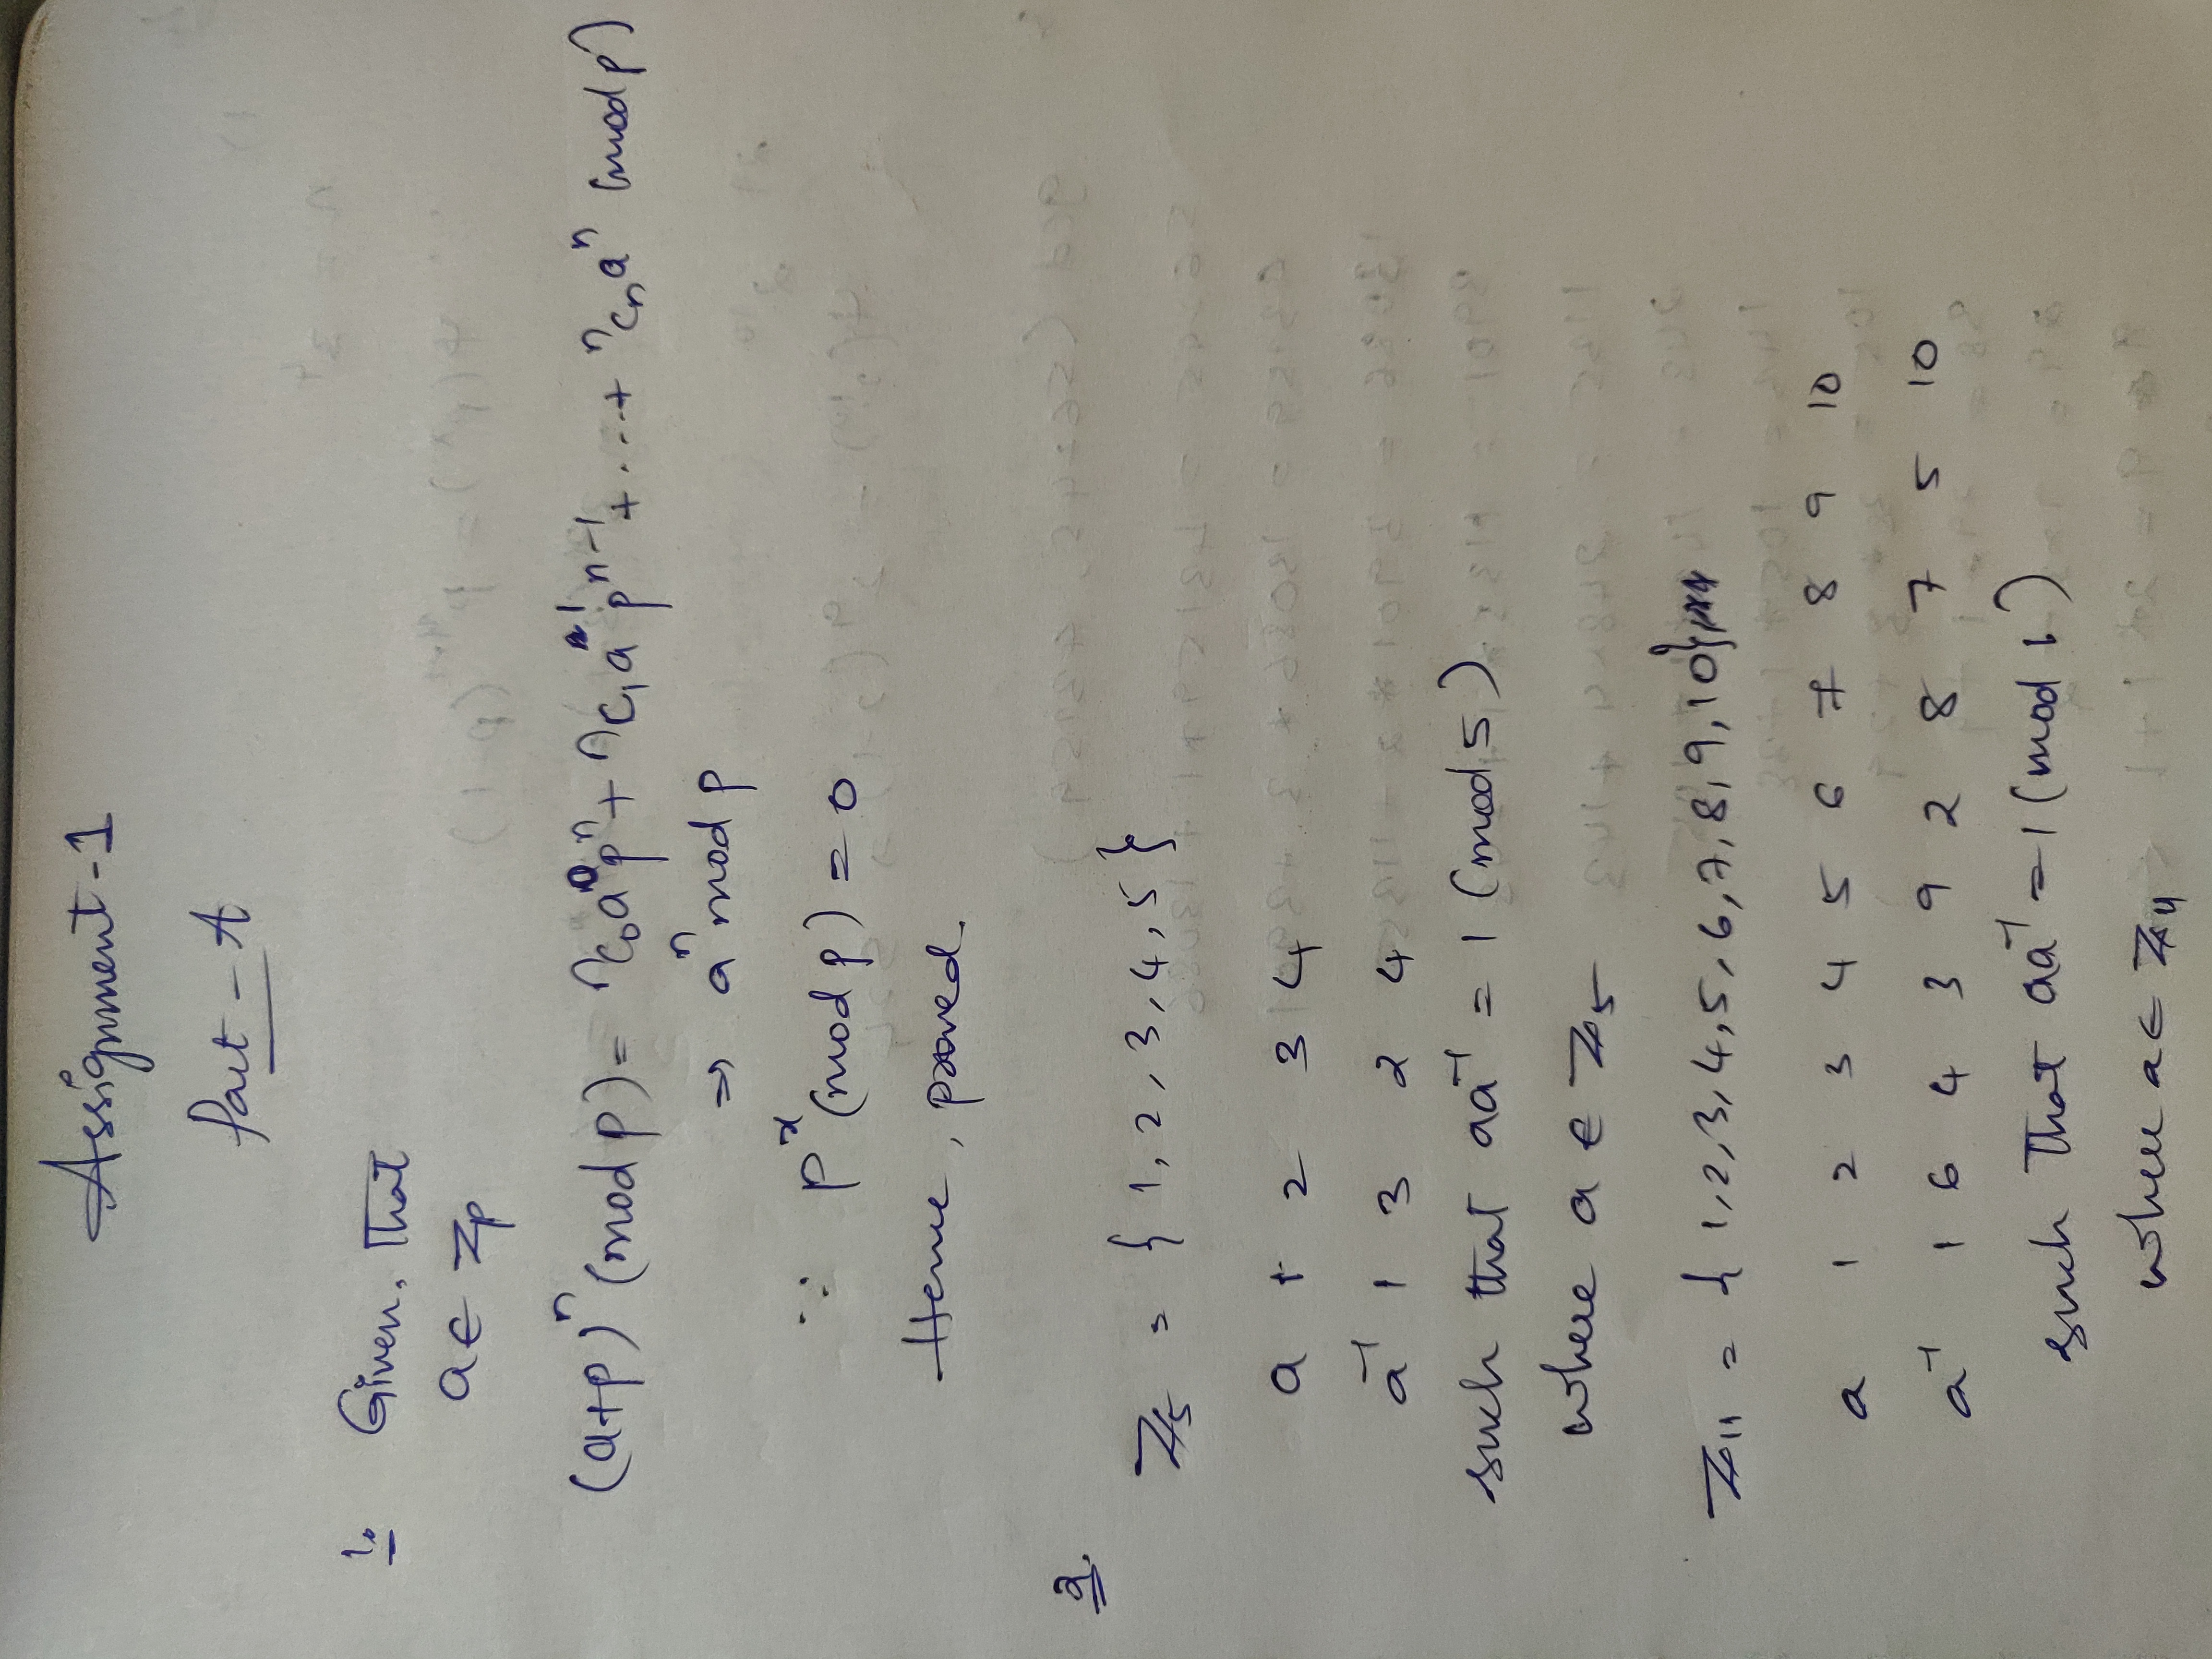 Assignment-1
Part-A
1. Given, that
a ∈ Zp
(a+p)ⁿ (mod p) = ⁿC₀a⁰pⁿ + ⁿC₁a¹pⁿ⁻¹ + ... + ⁿCₙaⁿ (mod p)
⇒ aⁿ mod p
∵ pˣ (mod p) = 0
Hence, proved.
2.
Z₅ = {1, 2, 3, 4, 5}
a 1 2 3 4
a⁻¹ 1 3 2 4
such that aa⁻¹ = 1 (mod 5)
where a ∈ Z₅
Z₁₁ = {1, 2, 3, 4, 5, 6, 7, 8, 9, 10}
a 1 2 3 4 5 6 7 8 9 10
a⁻¹ 1 6 4 3 9 2 8 7 5 10
such that aa⁻¹ = 1 (mod )
where a ∈ Z₁₁